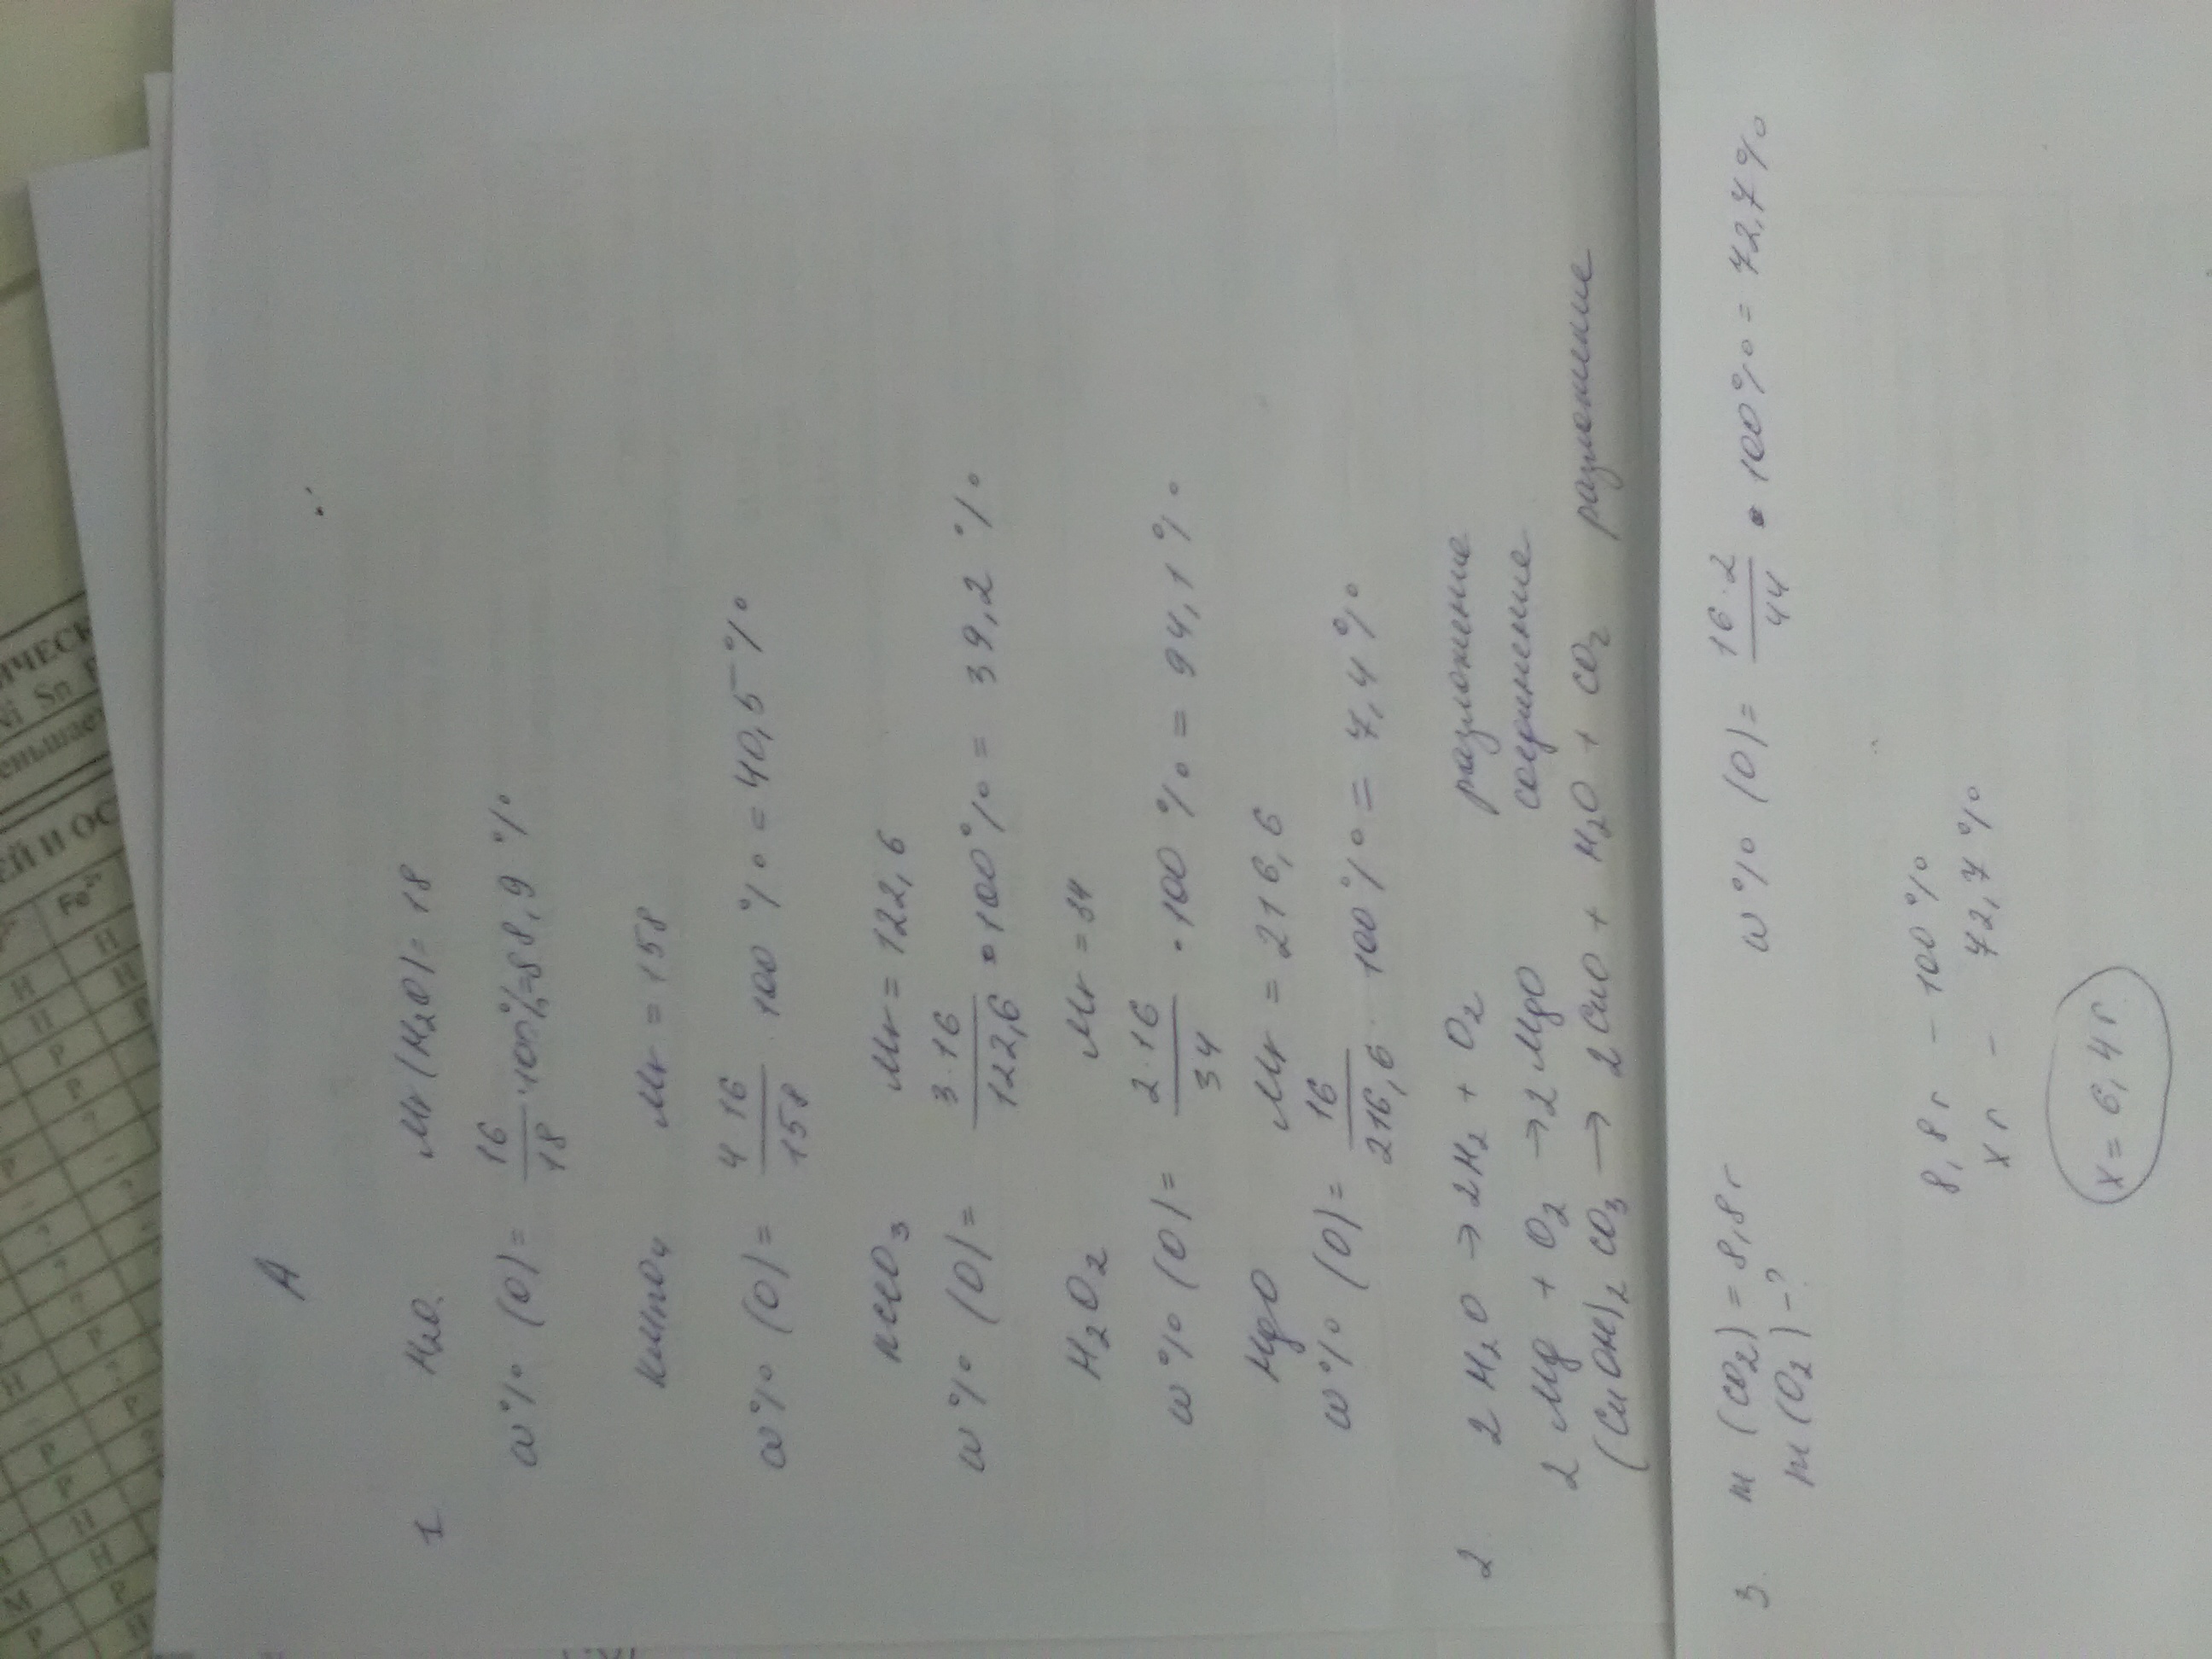 А
1 H₂O. Mr(H₂O)=18
ω% (O) = 16/18 · 100% = 88,9 %
KMnO₄ Mr = 158
ω% (O) = 4·16/158 · 100 % = 40,5 %
KClO₃ Mr = 122,6
ω% (O) = 3·16/122,6 · 100% = 39,2 %
H₂O₂ Mr = 34
ω% (O) = 2·16/34 · 100 % = 94,1 %
HgO Mr = 216,6
ω% (O) = 16/216,6 · 100% = 7,4 %
2 2 H₂O → 2H₂ + O₂ разложение
2 Mg + O₂ → 2 MgO соединение
(CuOH)₂CO₃ → 2 CuO + H₂O + CO₂ разложение
3. m (CO₂) = 8,8 г ω% (O) = 16·2/44 · 100% = 72,7 %
m (O₂) – ?
8,8 г – 100 %
x г – 72,7 %
x = 6,4 г
ИЧЕСК
Ni Sn
еньшает
ЕЙ И ОС
Fe²⁺